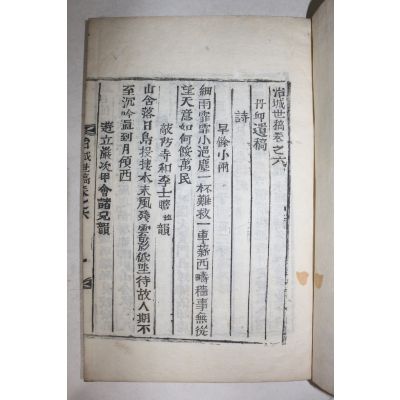 冶城世稿卷之六
丹邱遺稿
詩
旱餘小雨
細雨霏霏小浥塵一杯難救一車薪西疇穡事無從
望天意如何餒萬民
蔽防寺和李士贍韻
山含落日鳥投接木末風殘雲影低坐待故人期不
至沉吟直到月傾西
遊立巖次甲會諸兄韻
冶城世稿卷之六
一